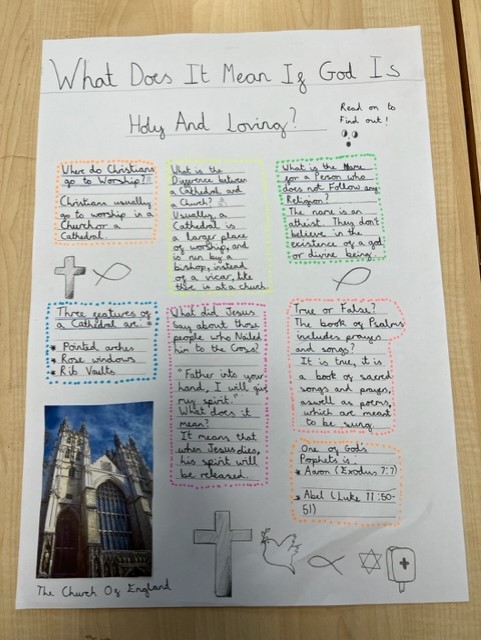 What Does It Mean If God Is
Holy And Loving?
Read on to
Find out!
Where do Christians
go to Worship?
Christians usually
go to worship in a
Church or a
Cathedral.
What is the
Difference between
a Cathedral and
a Church?
Usually, a
Cathedral is
a larger place
of worship, and
is run by a
bishop, instead
of a vicar, like
there is at a church.
What is the Name
for a Person who
does not Follow any
Religion?
The name is an
atheist. They don't
believe in the
existence of a god
or divine being.
Three features of
a Cathedral are:
* Pointed arches
* Rose windows
* Rib Vaults
What did Jesus
Say about those
people who Nailed
him to the Cross?
"Father into your
hand, I will give
my spirit."
What does it
mean?
It means that
when Jesus dies,
his spirit will
be released.
True or False?
The book of Psalms
includes prayers
and songs?
It is true, it is
a book of sacred
songs and prayers,
aswell as poems,
which are meant
to be sung.
One of God's
Prophets is:
* Aaron (Exodus 7:7)
* Abel (Luke 11:50-
51)
The Church Of England